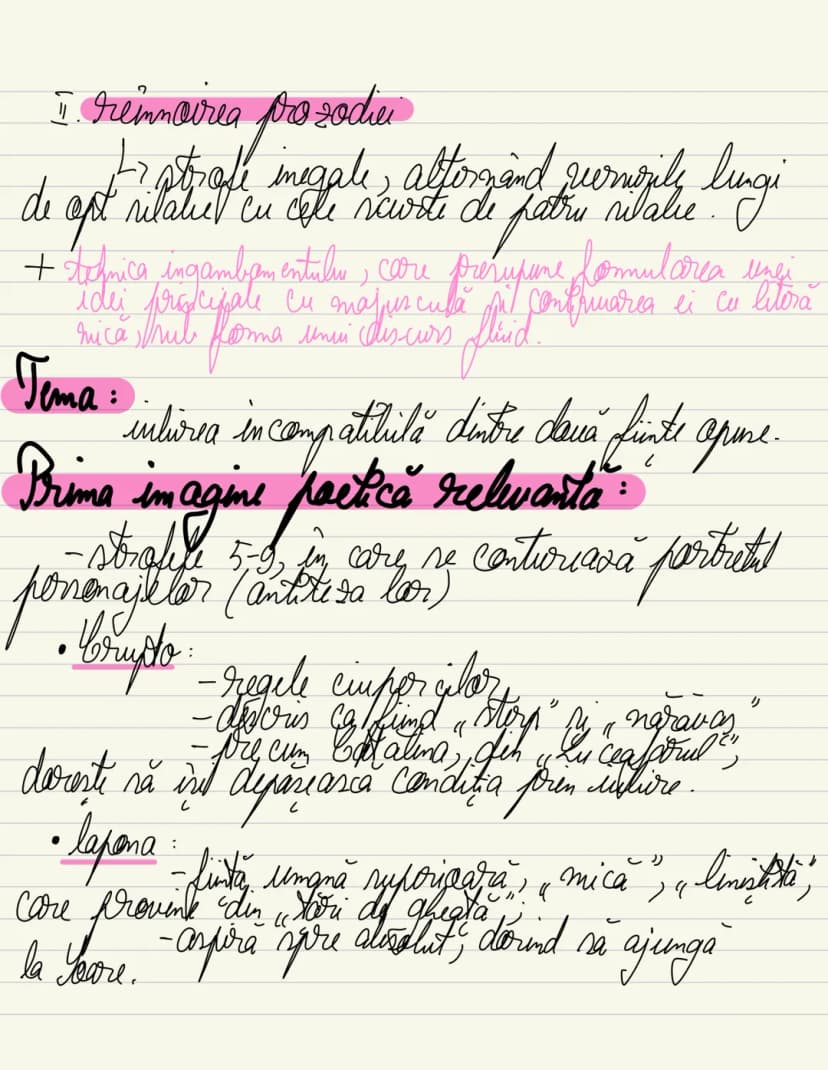 II. reînnoirea prozodiei
↳ strofe inegale, alternând versurile lungi
de opt silabe cu cele scurte de patru silabe.
+ tehnica ingambamentului, care presupune formularea unei
idei principale cu majusculă și continuarea ei cu literă
mică, sub forma unui discurs fluid.
Tema:
iubirea incompatibilă dintre două ființe opuse.
Prima imagine poetică relevantă:
- strofele 5-9, în care se conturează portretul
personajelor (antiteza lor)
• Crypto:
- regele ciupercilor,
- descris ca fiind „sterp" și „nărăvaș"
- precum Cătălina, din „Luceafărul",
dorește să își depășească condiția prin iubire.
• lapona:
- ființă umană superioară, „mică", „liniștită",
care provine din „țări de gheață";
- aspiră spre absolut, dorind să ajungă
la Soare.